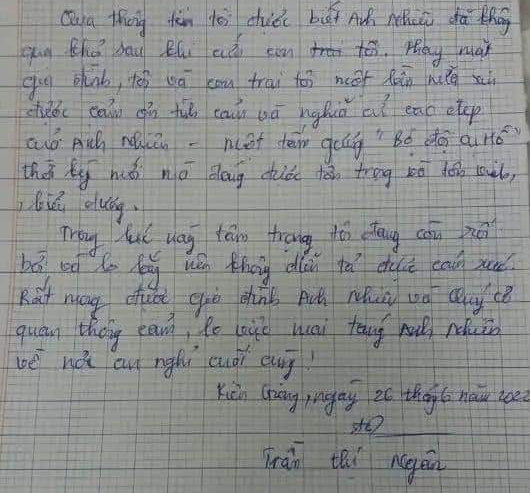 Qua thông tin tôi được biết Anh Nhiên đã không
qua khỏi sau khi cứu con tôi. Thay mặt
gia đình, tôi và con trai tôi một lần nữa xin
được cảm ơn tình cảm và nghĩa cử cao đẹp
của Anh Nhiên - một tấm gương "Bộ đội cụ Hồ"
thời kỳ mới nó đáng được tôn trọng và tôn vinh,
, biểu dương.
Trong lúc này tâm trạng tôi đang còn rối
bời và lo lắng nên không diễn tả được cảm xúc.
Rất mong được gia đình Anh Nhiên và Quý cơ
quan thông cảm, lo việc mai táng Anh Nhiên
về nơi an nghỉ cuối cùng!
Kiên Giang, ngày 26 tháng 6 năm 2022
Trần thị Ngân